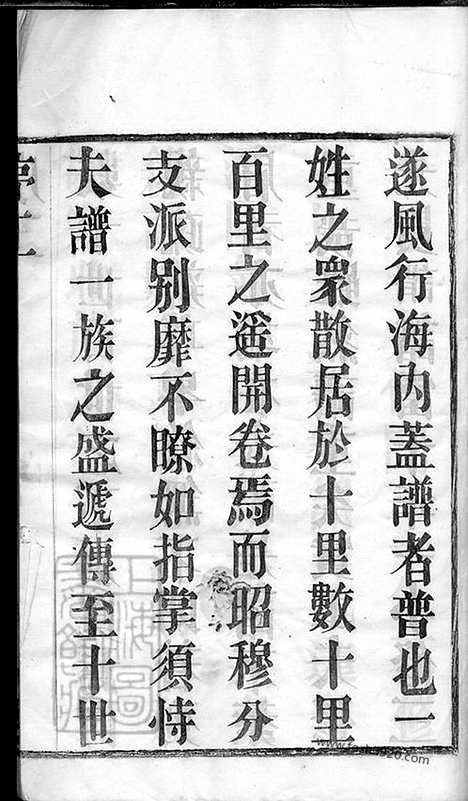 遂風行海內蓋譜者普也一
姓之衆散居於十里數十里
百里之遥開卷焉而昭穆分
支派別靡不瞭如指掌須恃
夫譜一族之盛遞傳至十世